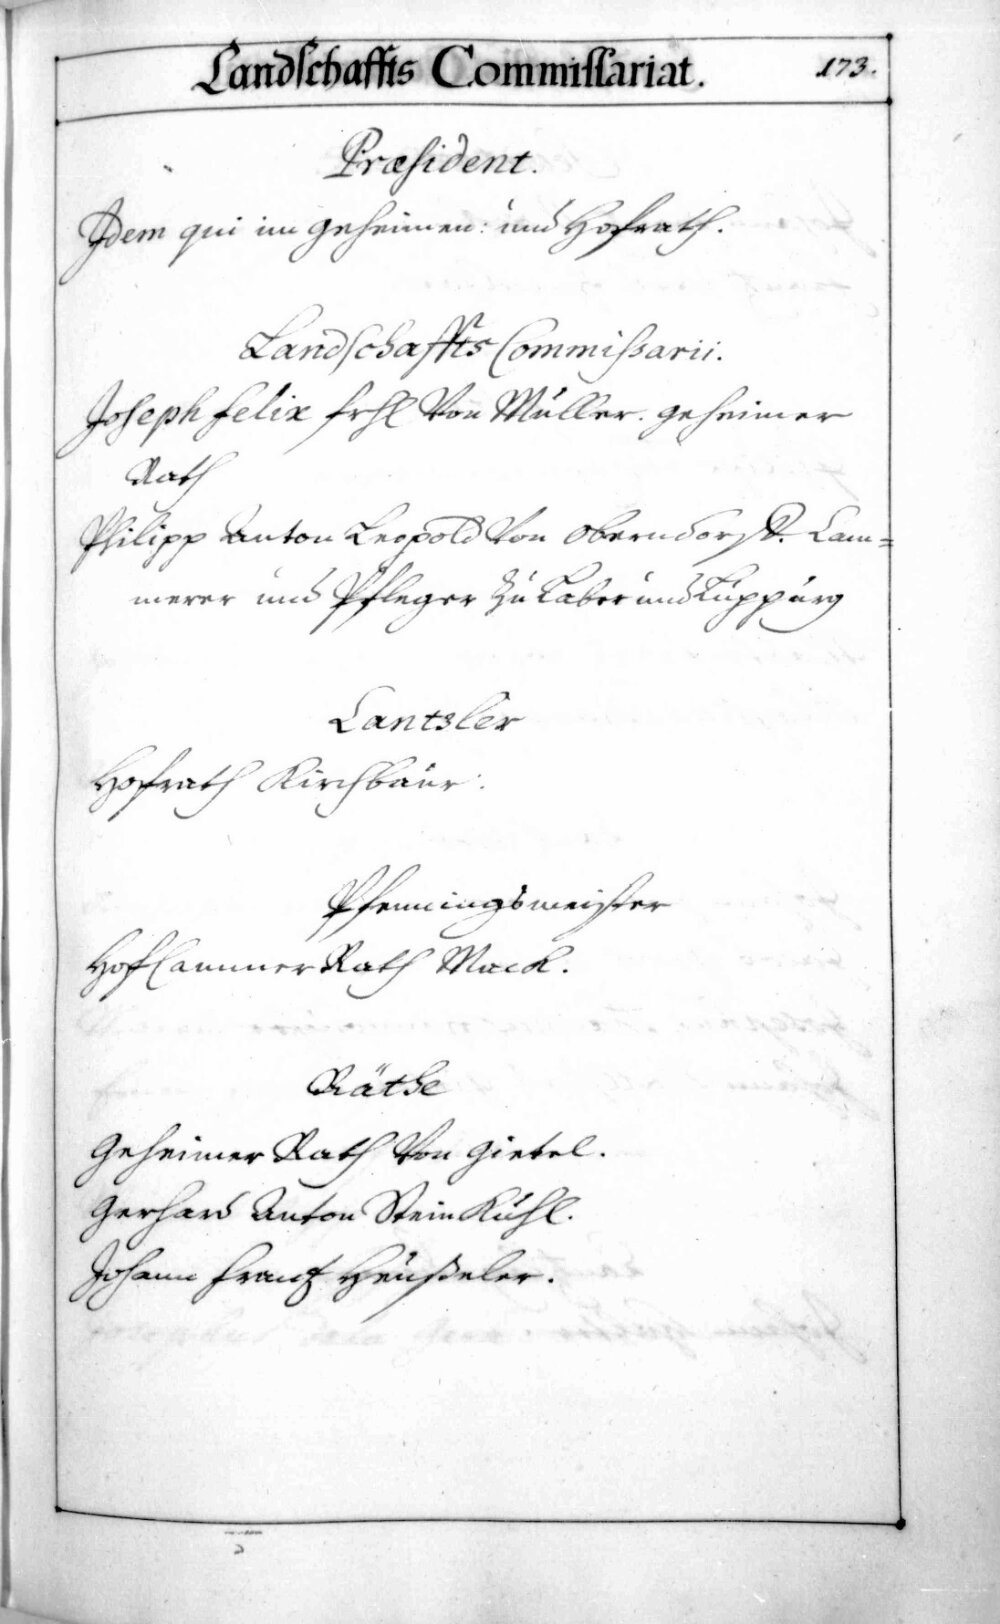 Landschaffts Commissariat. 173.
Præsident.
Idem qui im geheimen: und Hofrath.
Landschaffts Commißarii.
Joseph Felix frhl von Müller. geheimer
Rath
Philipp Anton Leopold von Oberndorff. Cam=
merer und Pfleger zu Laber und Luppurg
Cantzler
Hofrath Kirchbaur.
Pfenningsmeister
HofCammer Rath Mack.
Räthe
Geheimer Rath von Gietel.
Gerhard Anton SteinKühl.
Johann Frantz Heußeler.